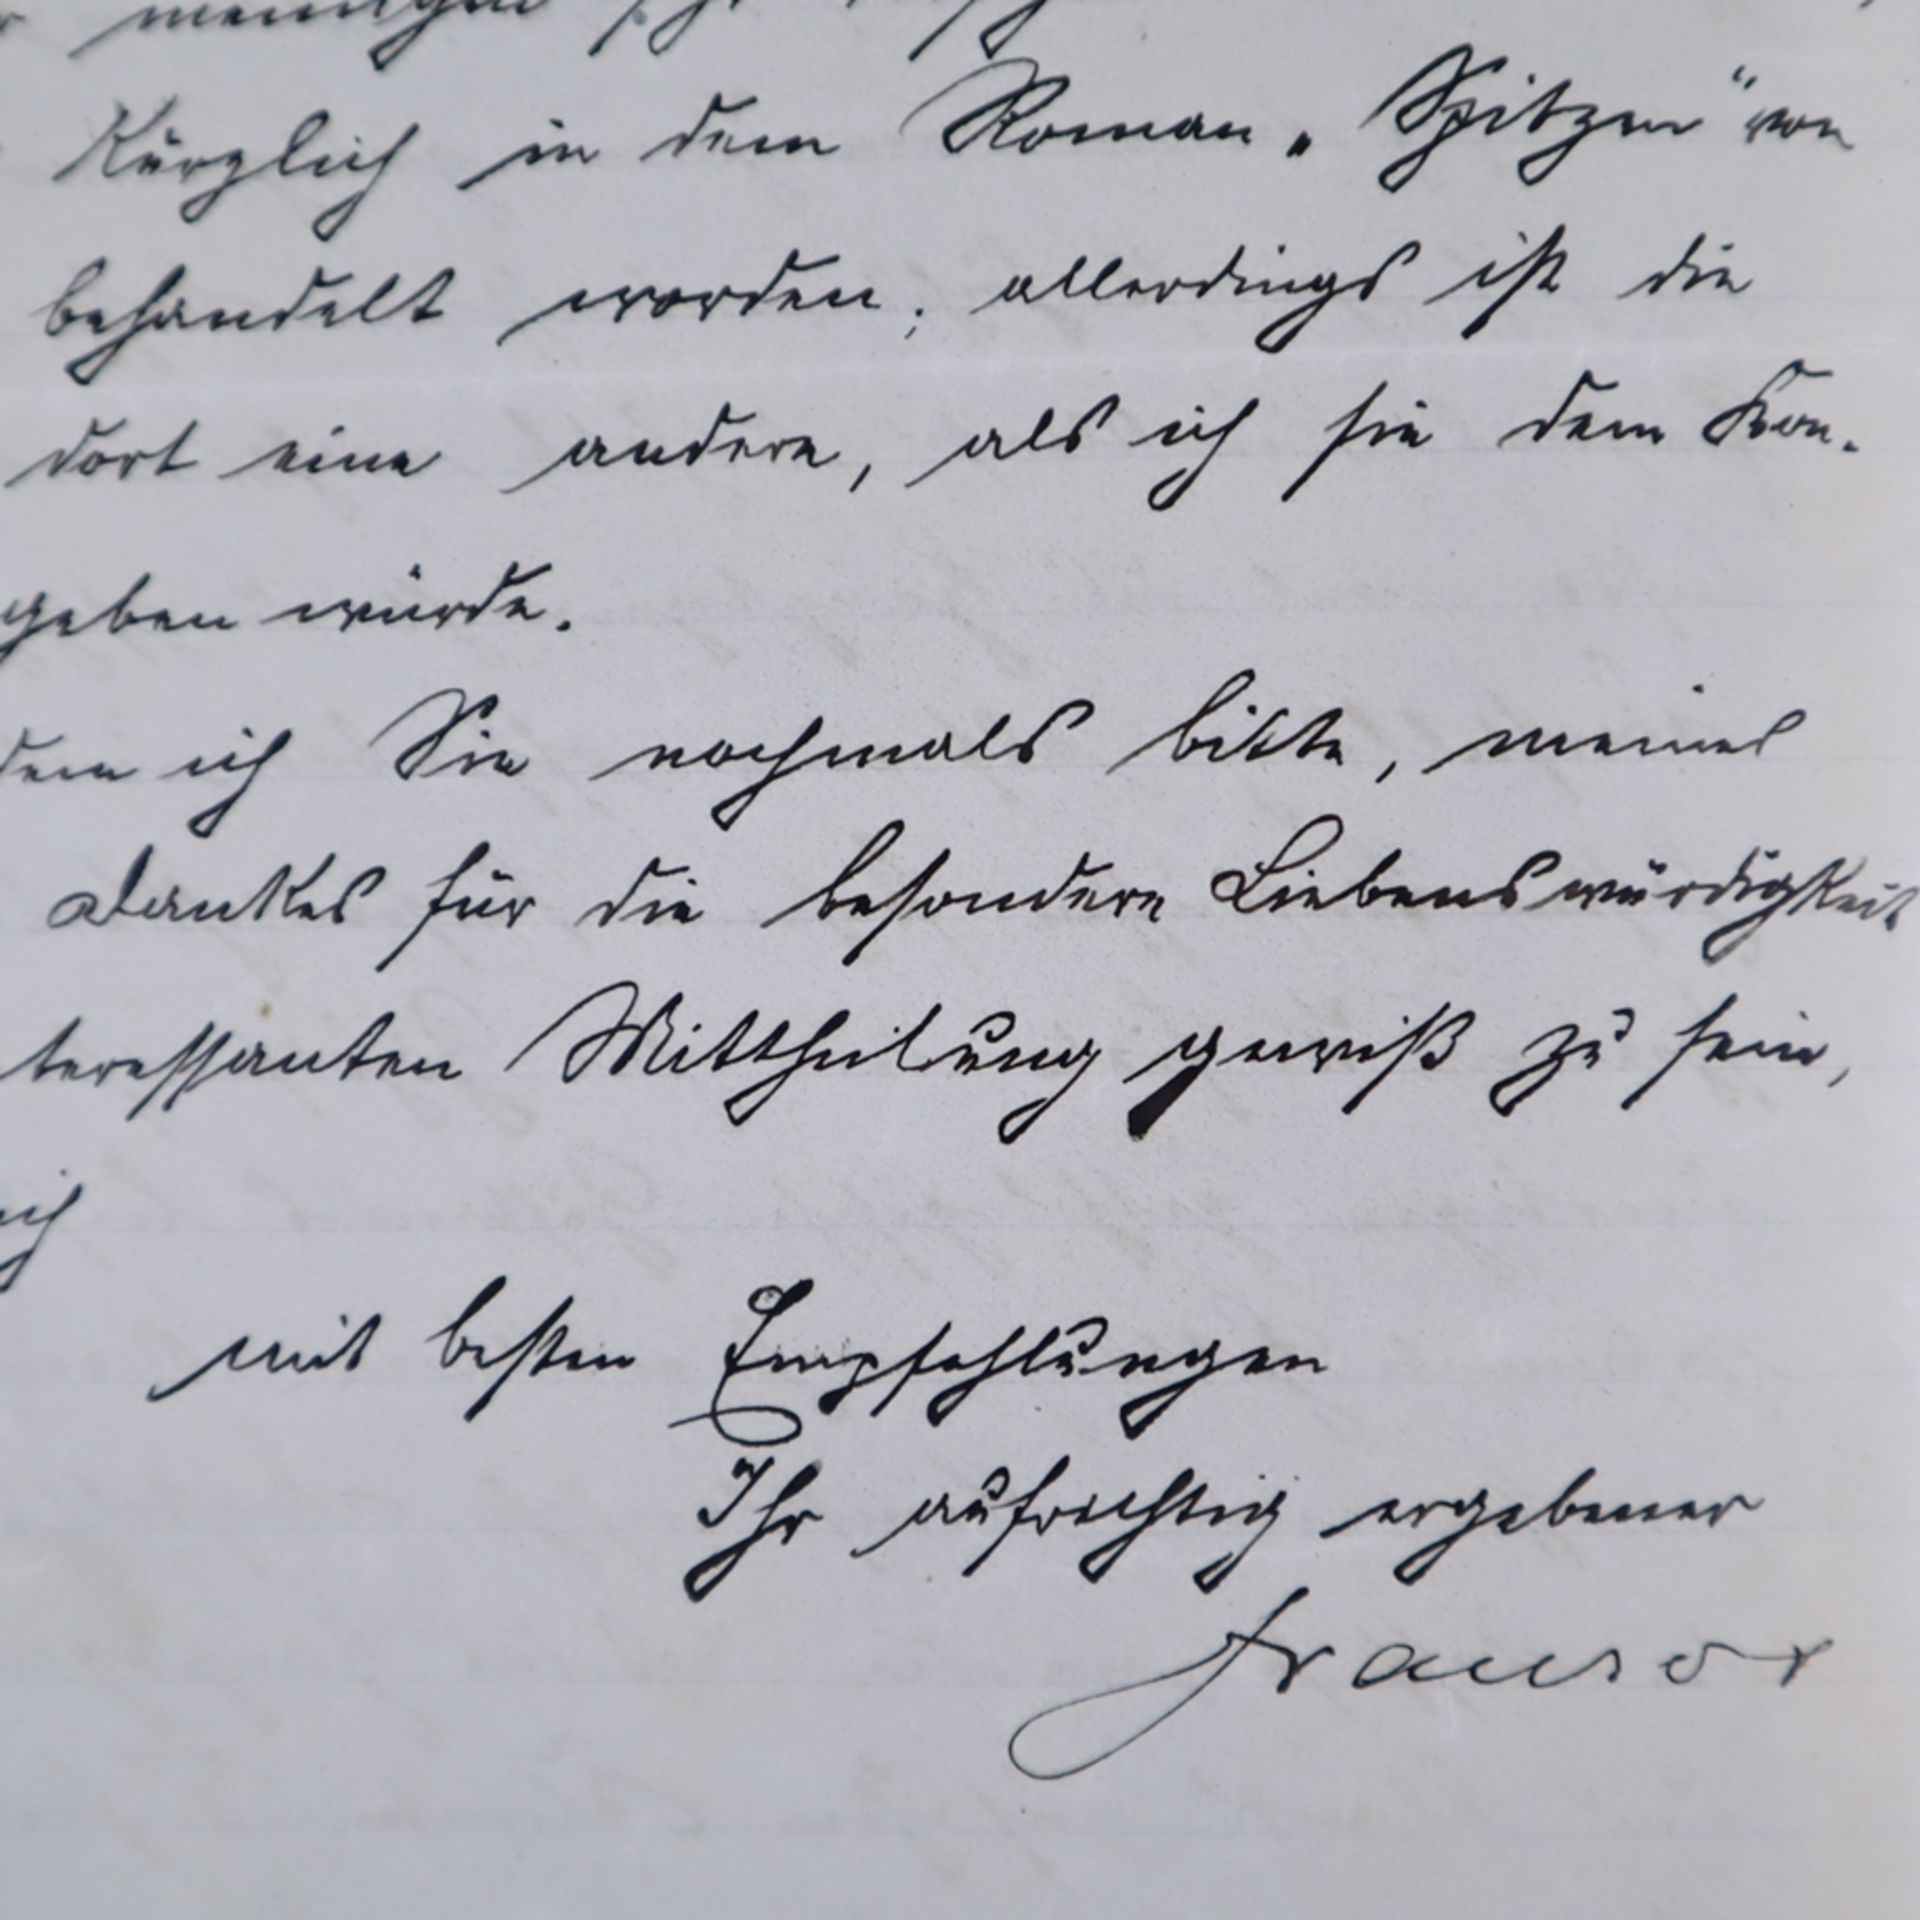 Kürzlich in dem Roman „Spitzen“ von
behandelt worden; allerdings ist die
dort eine andere, als ich sie dem Kon-
geben würde.
dem ich Sie nochmals bitte, meines
Dankes für die besondere Liebenswürdigkeit
teressanten Mittheilung gewiß zu sein,
ich
mit besten Empfehlungen
Ihr aufrichtig ergebener
Franzos